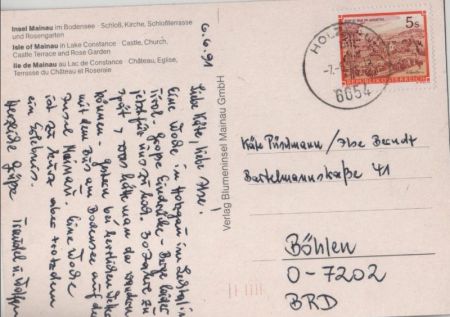 Insel Mainau im Bodensee · Schloß, Kirche, Schloßterrasse
und Rosengarten
Isle of Mainau in Lake Constance · Castle, Church,
Castle Terrace and Rose Garden
Ile de Mainau au Lac de Constance · Château, Eglise,
Terrasse du Château et Roseraie
6.6.91
Liebe Käte, liebe Ilse!
Eine Woche in Holzgau im Lechtal in
Tirol. große Eindrücke - Berge leider
jetzt für uns zu hoch, 30 Jahre zu
spät, was hätte man da wandern
können. Gestern bei herrlichem Wetter
mit dem Bus am Bodensee auf der
Insel Mainau. Eine Woche
ist zu kurz aber trotzdem
ein Erlebnis.
Herzliche Grüße
Traudel u.
Verlag Blumeninsel Mainau GmbH
5s
REPUBLIK ÖSTERREICH
6654
Käte /Ilse Berndt
Bartelmannstraße 41
Böhlen
O-7202
BRD